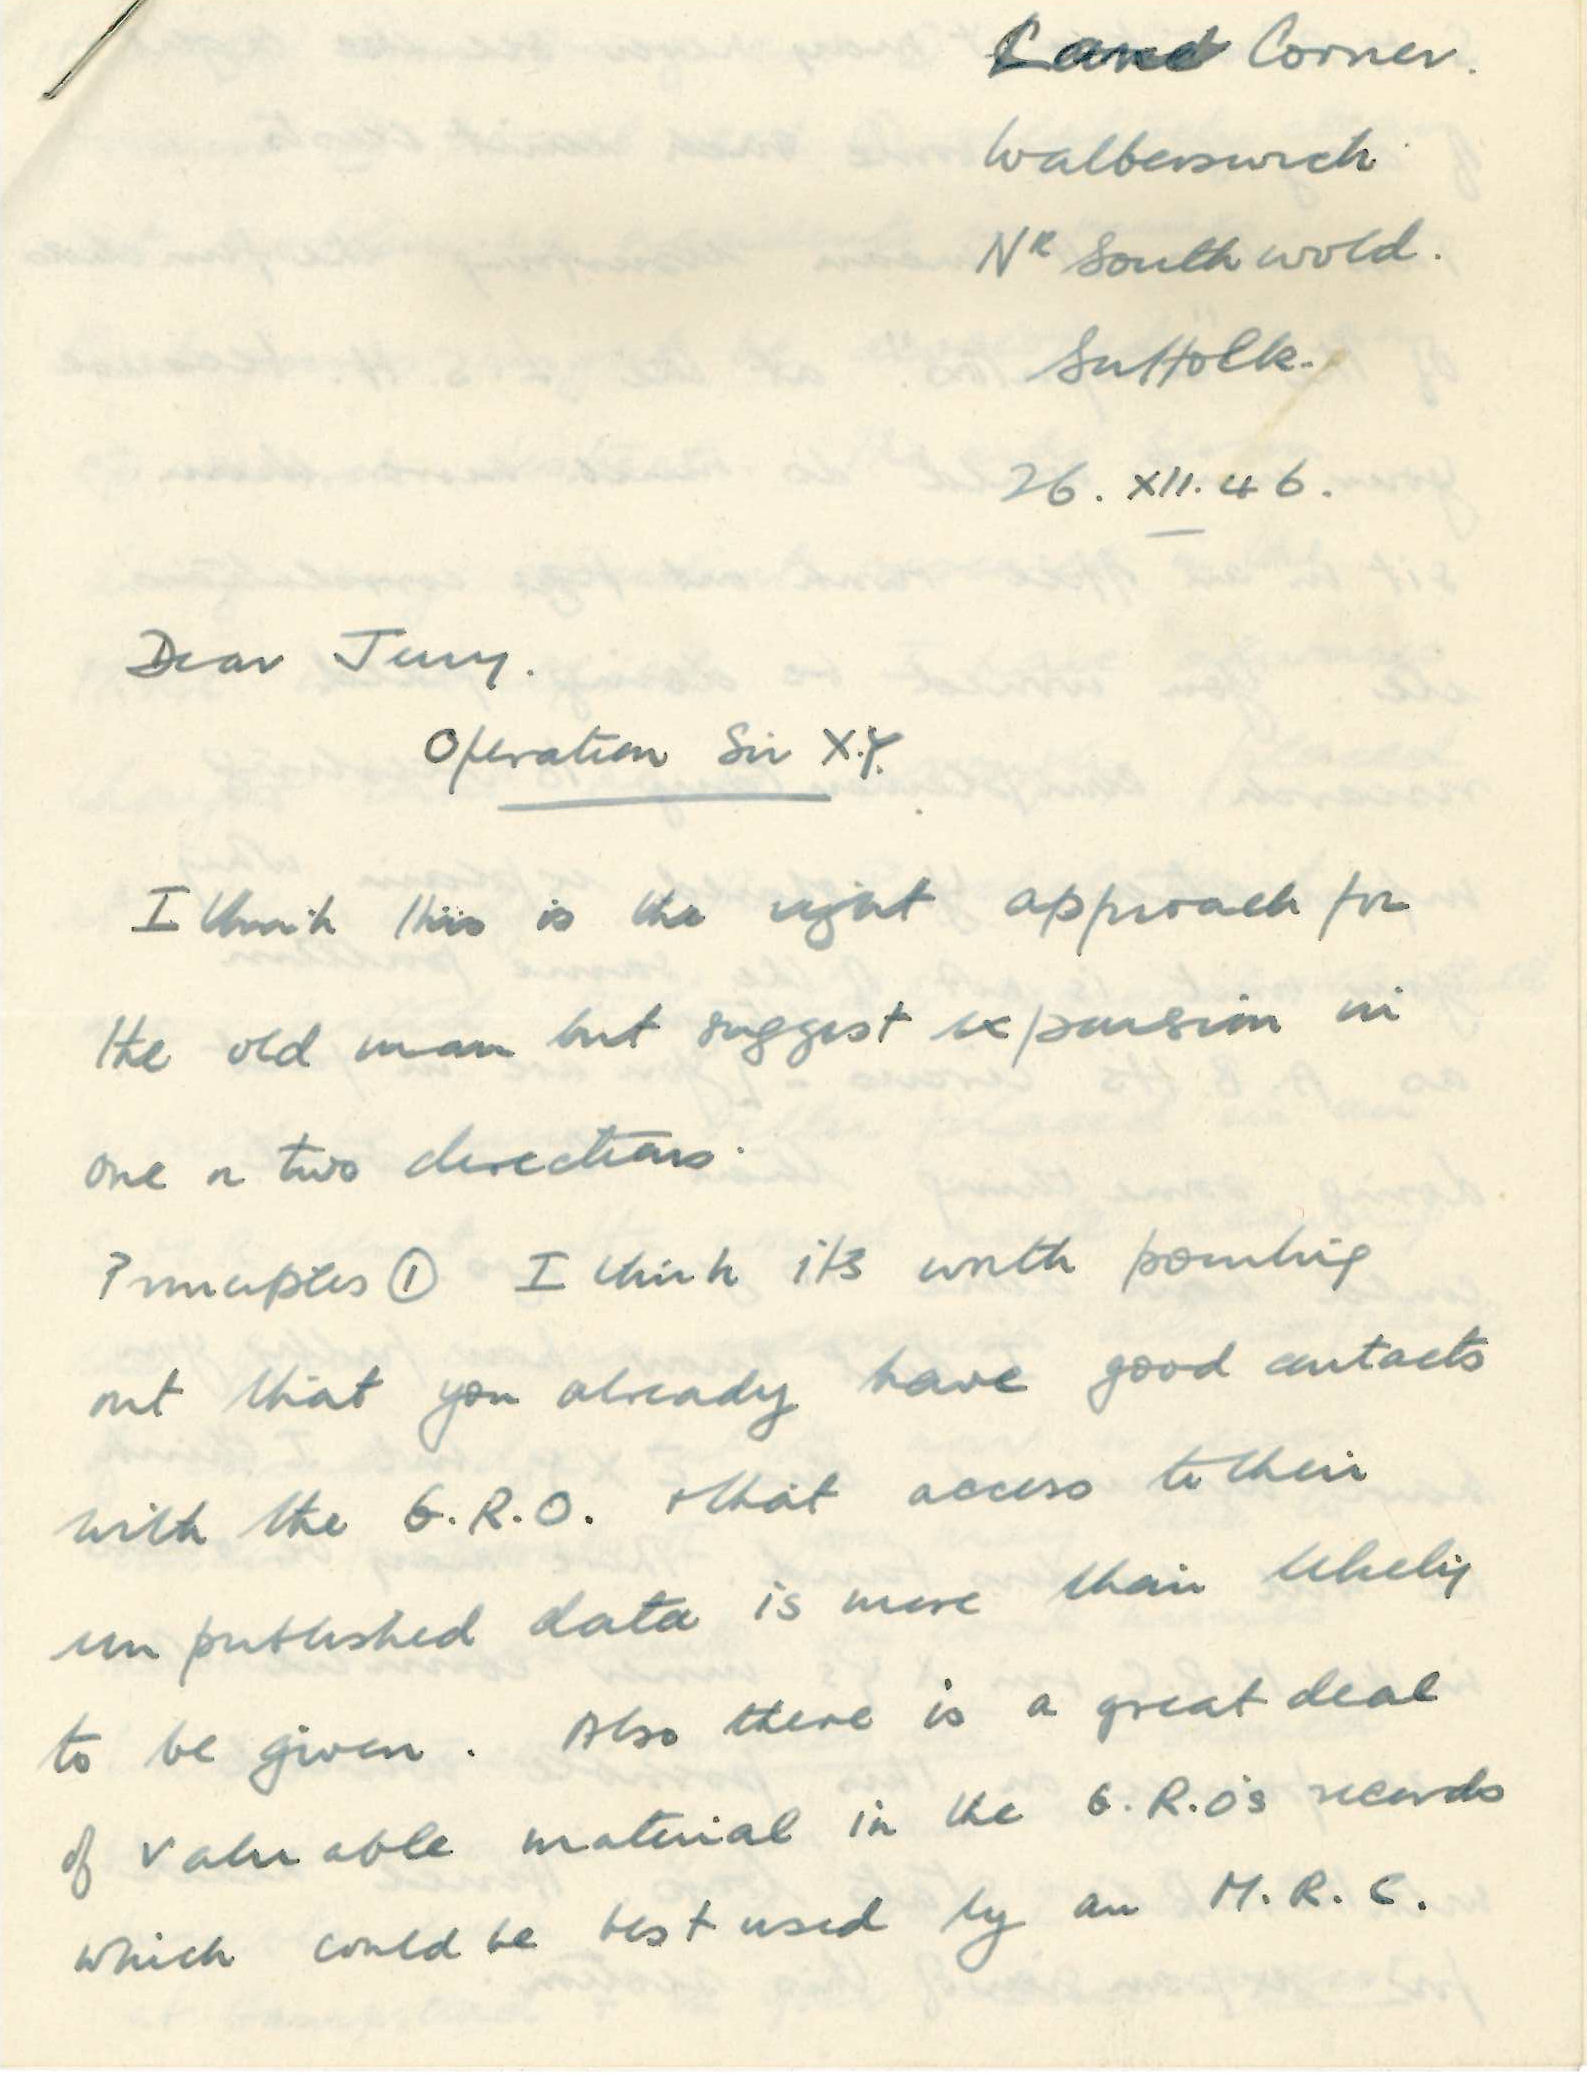 Land Corner.
Walberswick
Nᴿ Southwold.
Suffolk.
26. XII. 46.
Dear Jerry.
Operation Sir X.Y.
I think this is the right approach for
the old man but suggest expansion in
one or two directions.
Principles ① I think its worth pointing
out that you already have good contacts
with the G.R.O. & that access to their
unpublished data is more than likely
to be given. Also there is a great deal
of valuable material in the G.R.O's records
which could be best used by an M.R.C.